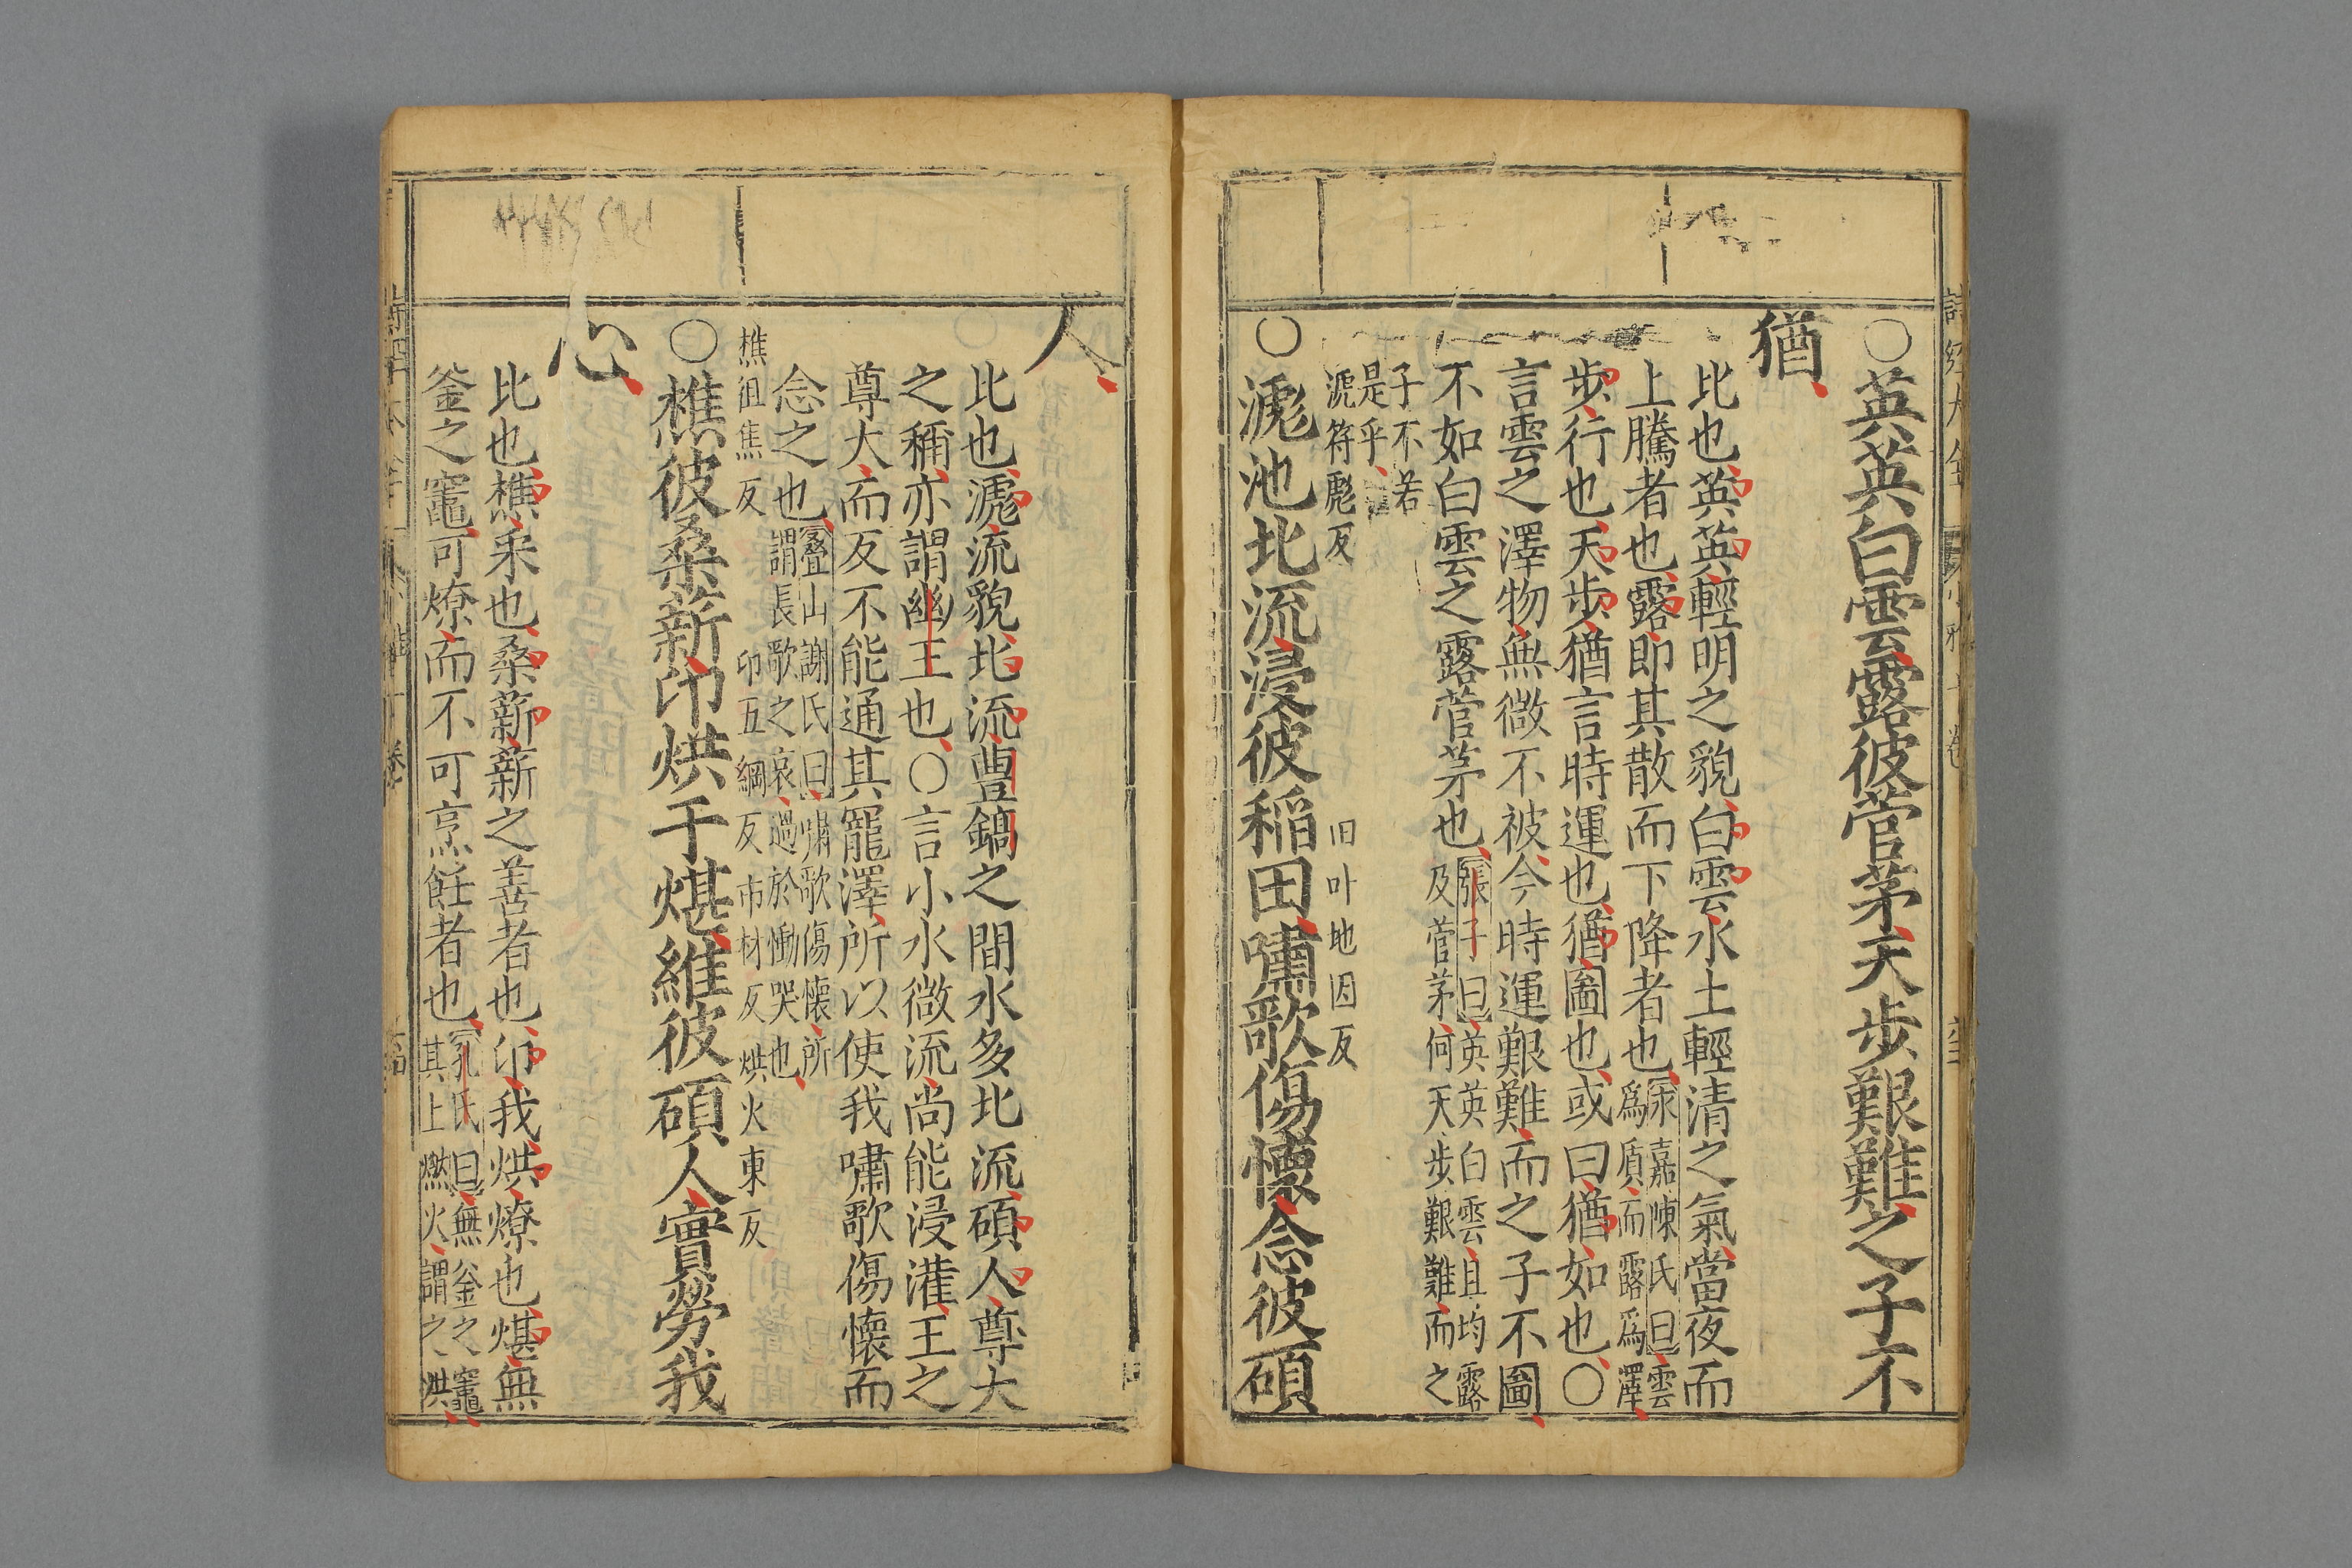 ○英英白雲露彼菅茅天步艱難之子不
猶
比也英英輕明之貌白雲水土輕清之氣當夜而
上騰者也露即其散而下降者也永嘉陳氏曰雲
爲質而露爲澤
步行也天步猶言時運也猶圖也或曰猶如也○
言雲之澤物無微不被今時運艱難而之子不圖
不如白雲之露菅茅也張子曰英英白雲且均露
及菅茅何天步艱難而之
子不若
是乎
滮符彪反 田叶地因反
○滮池北流浸彼稻田嘯歌傷懷念彼碩
人
比也滮流貌北流豊鎬之間水多北流碩人尊大
之稱亦謂幽王也○言小水微流尚能浸灌王之
尊大而反不能通其寵澤所以使我嘯歌傷懷而
念之也疊山謝氏曰嘯歌傷懷所
謂長歌之哀過於慟哭也
樵徂焦反 卬五綱反 市林反 烘火東反
○樵彼桑薪卬烘于煁維彼碩人實勞我
心
比也樵采也桑薪薪之善者也卬我烘燎也煁無
釜之竈可燎而不可烹飪者也孔氏曰無釜之竈
其上燃火謂之烘